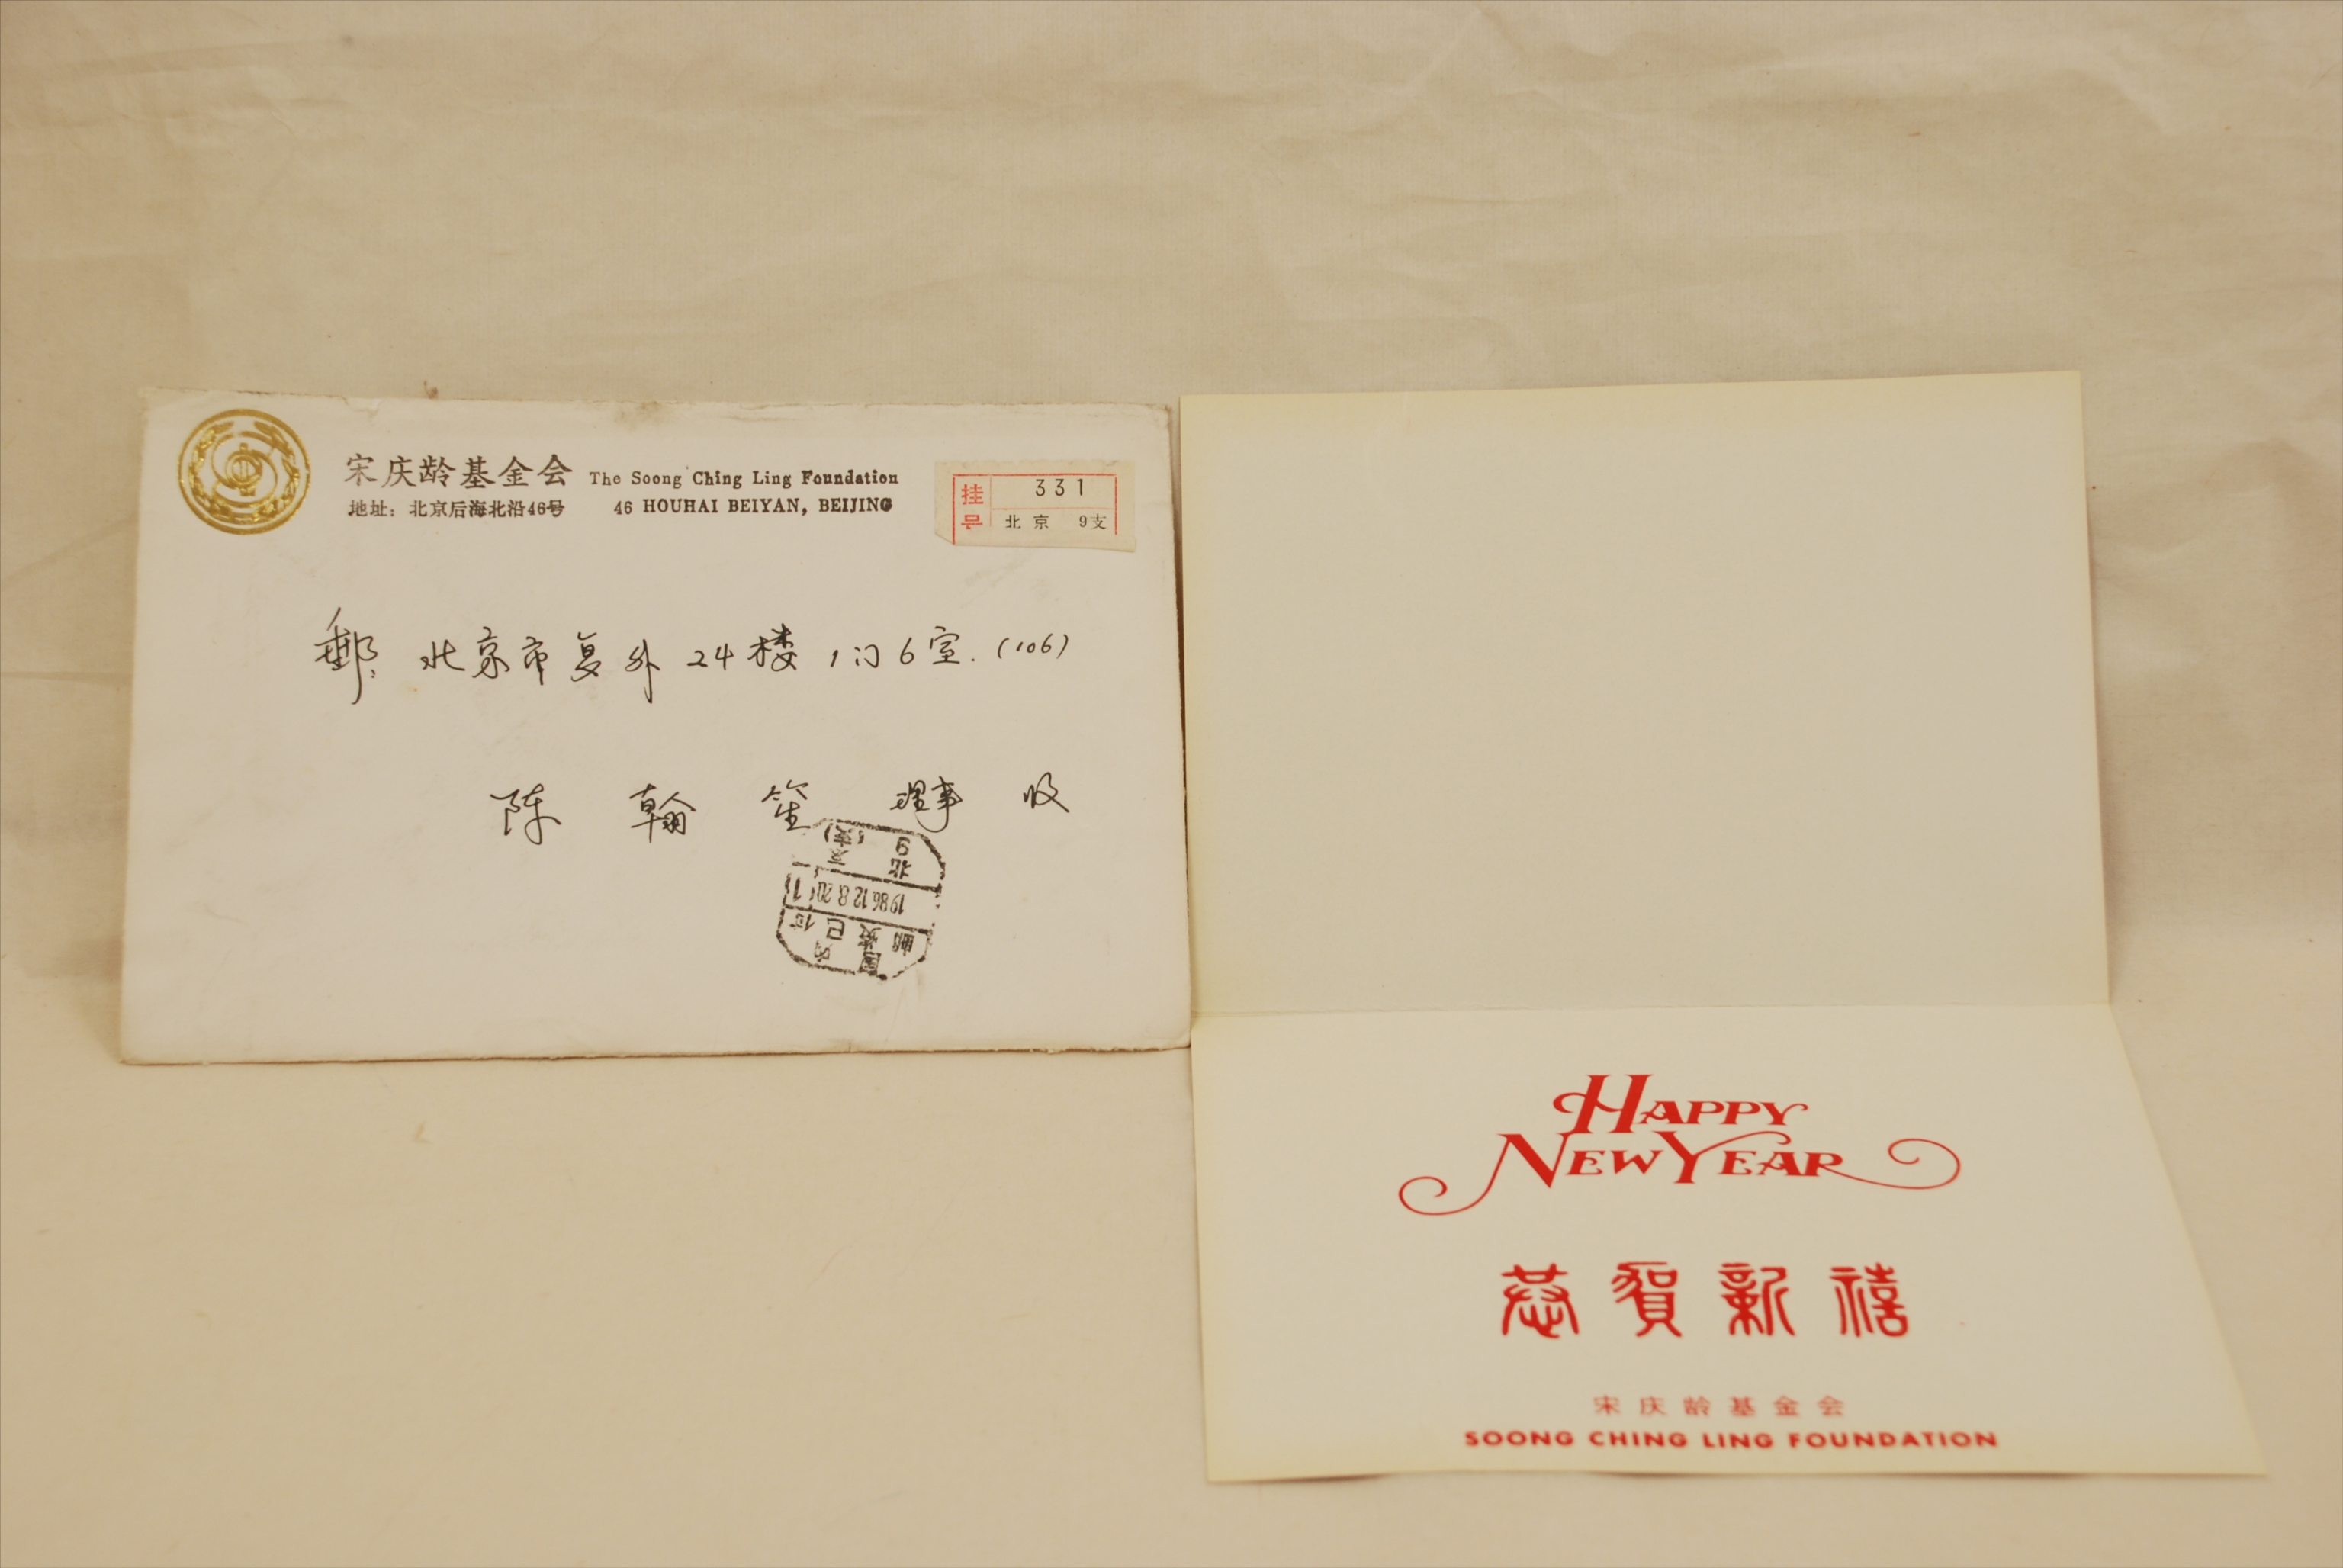 宋庆龄基金会 The Soong Ching Ling Foundation
地址：北京后海北沿46号 46 HOUHAI BEIYAN, BEIJING
挂号
331
北京 9支
郵 北京市复外24楼1门6室.(106)
陈翰笙 理事 收
北京
9(支)
1986.12.8.20
国内
邮资已付
HAPPY
NEW YEAR
恭賀新禧
宋庆龄基金会
SOONG CHING LING FOUNDATION